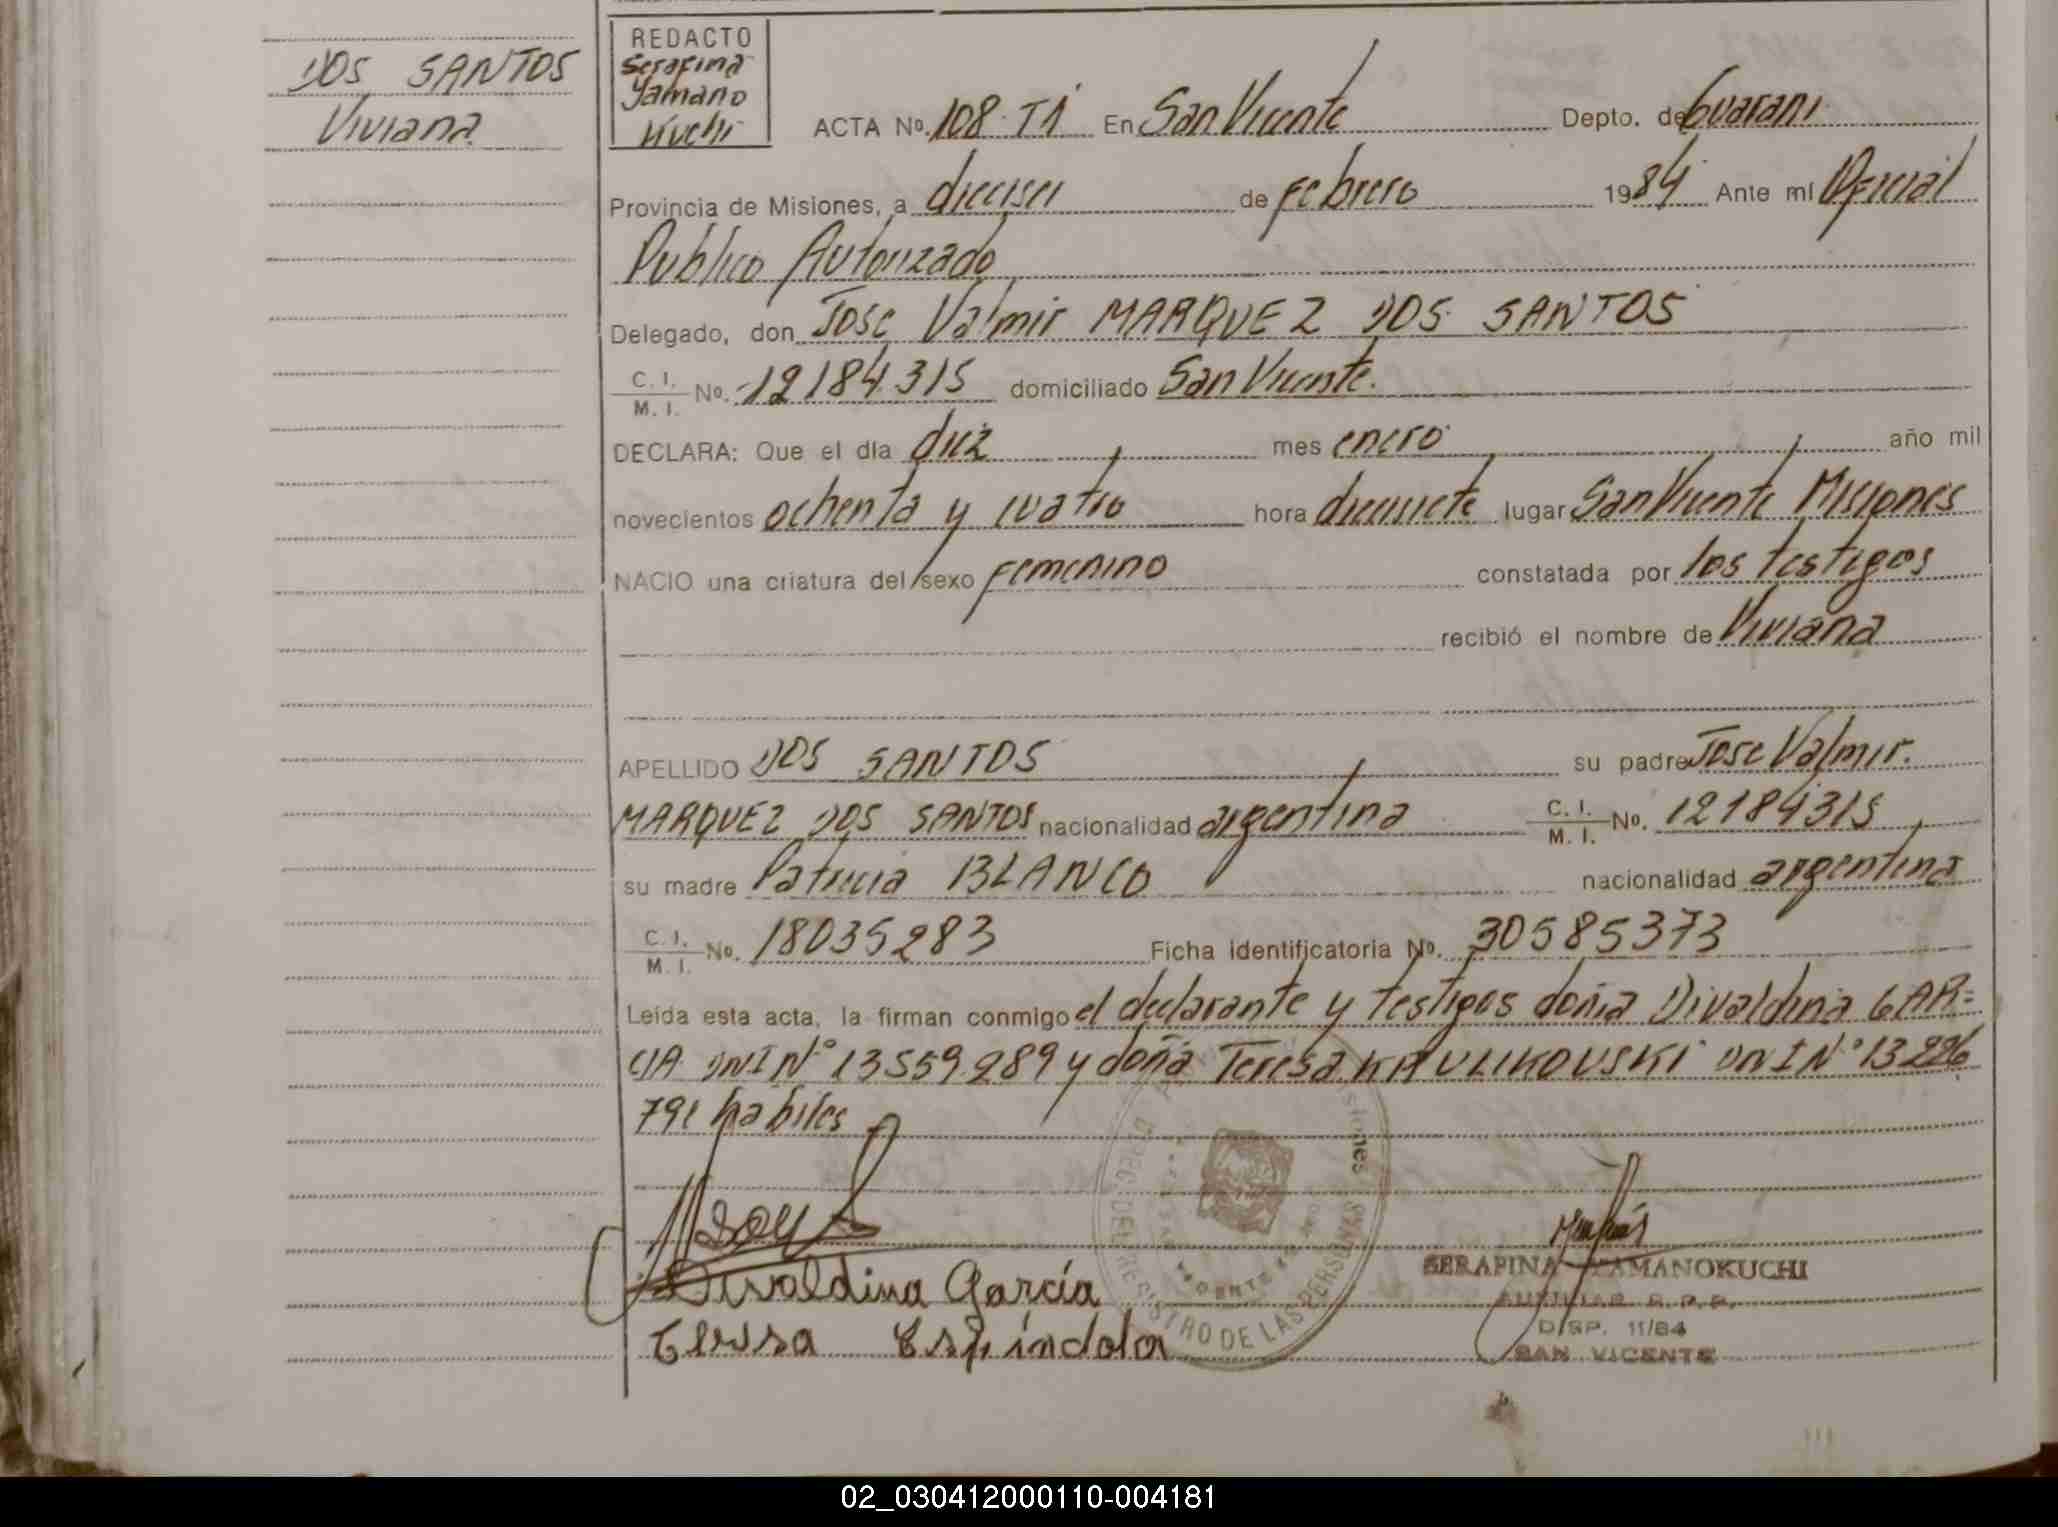 DOS SANTOS
Viviana
REDACTO
Serafina
Yamano
Kuchi
ACTA Nº. 108 - T1 En San Vicente Depto. de Guarani
Provincia de Misiones, a dieciseis de Febrero 1984 Ante mí Oficial
Publico Autorizado
Delegado, don Jose Valmir MARQUEZ DOS SANTOS
C. I. / M. I. Nº. 12184.315 domiciliado San Vicente.
DECLARA: Que el día diez mes enero año mil
novecientos ochenta y cuatro hora diecisiete lugar San Vicente Misiones
NACIO una criatura del sexo Femenino constatada por los testigos
recibió el nombre de Viviana
APELLIDO DOS SANTOS su padre Jose Valmir.
MARQUEZ DOS SANTOS nacionalidad argentina C. I. / M. I. Nº. 12184315
su madre Patricia BLANCO nacionalidad argentina
C. I. / M. I. Nº. 18035283 Ficha identificatoria Nº. 30585373
Leída esta acta, la firman conmigo el declarante y testigos doña Divaldina GAR=
CIA DNI Nº 13559.289 y doña Teresa KRULIKOUSKI DNI Nº 13226
791 habiles
Divaldina García
Teresa Espíndola
REGISTRO DE LAS PERSONAS
SERAFINA YAMANOKUCHI
AUXILIAR R.P.P.
DISP. 11/84
SAN VICENTE
02_030412000110-004181